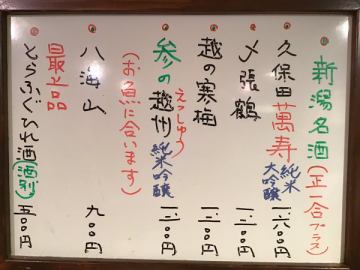 新潟名酒（正一合プラス）
久保田萬寿 純米大吟醸 一、六〇〇円
〆張鶴 一、一〇〇円
越の寒梅 一、二〇〇円
参の越州 えっしゅう 純米吟醸 一、二〇〇円
（お魚に合います）
八海山 九〇〇円
最上品
とらふぐひれ酒（酒別）五〇〇円